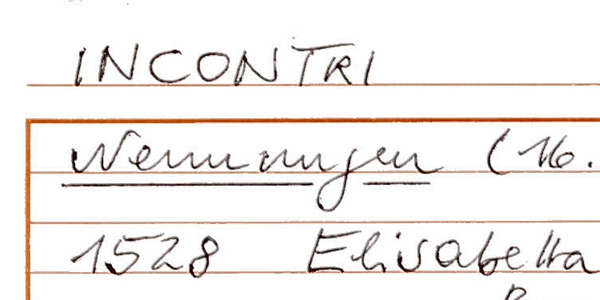 INCONTRI
Nenningen (16.
1528 Elisabetta